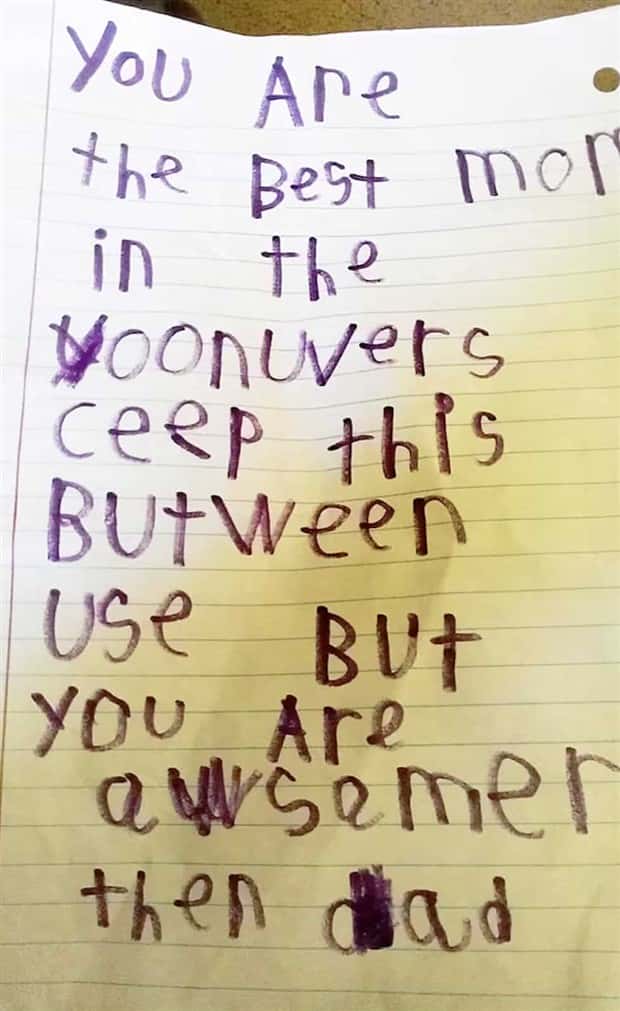 You Are
the Best mom
in the
yoonuvers
ceep this
Butween
use But
you Are
awsemer
then dad